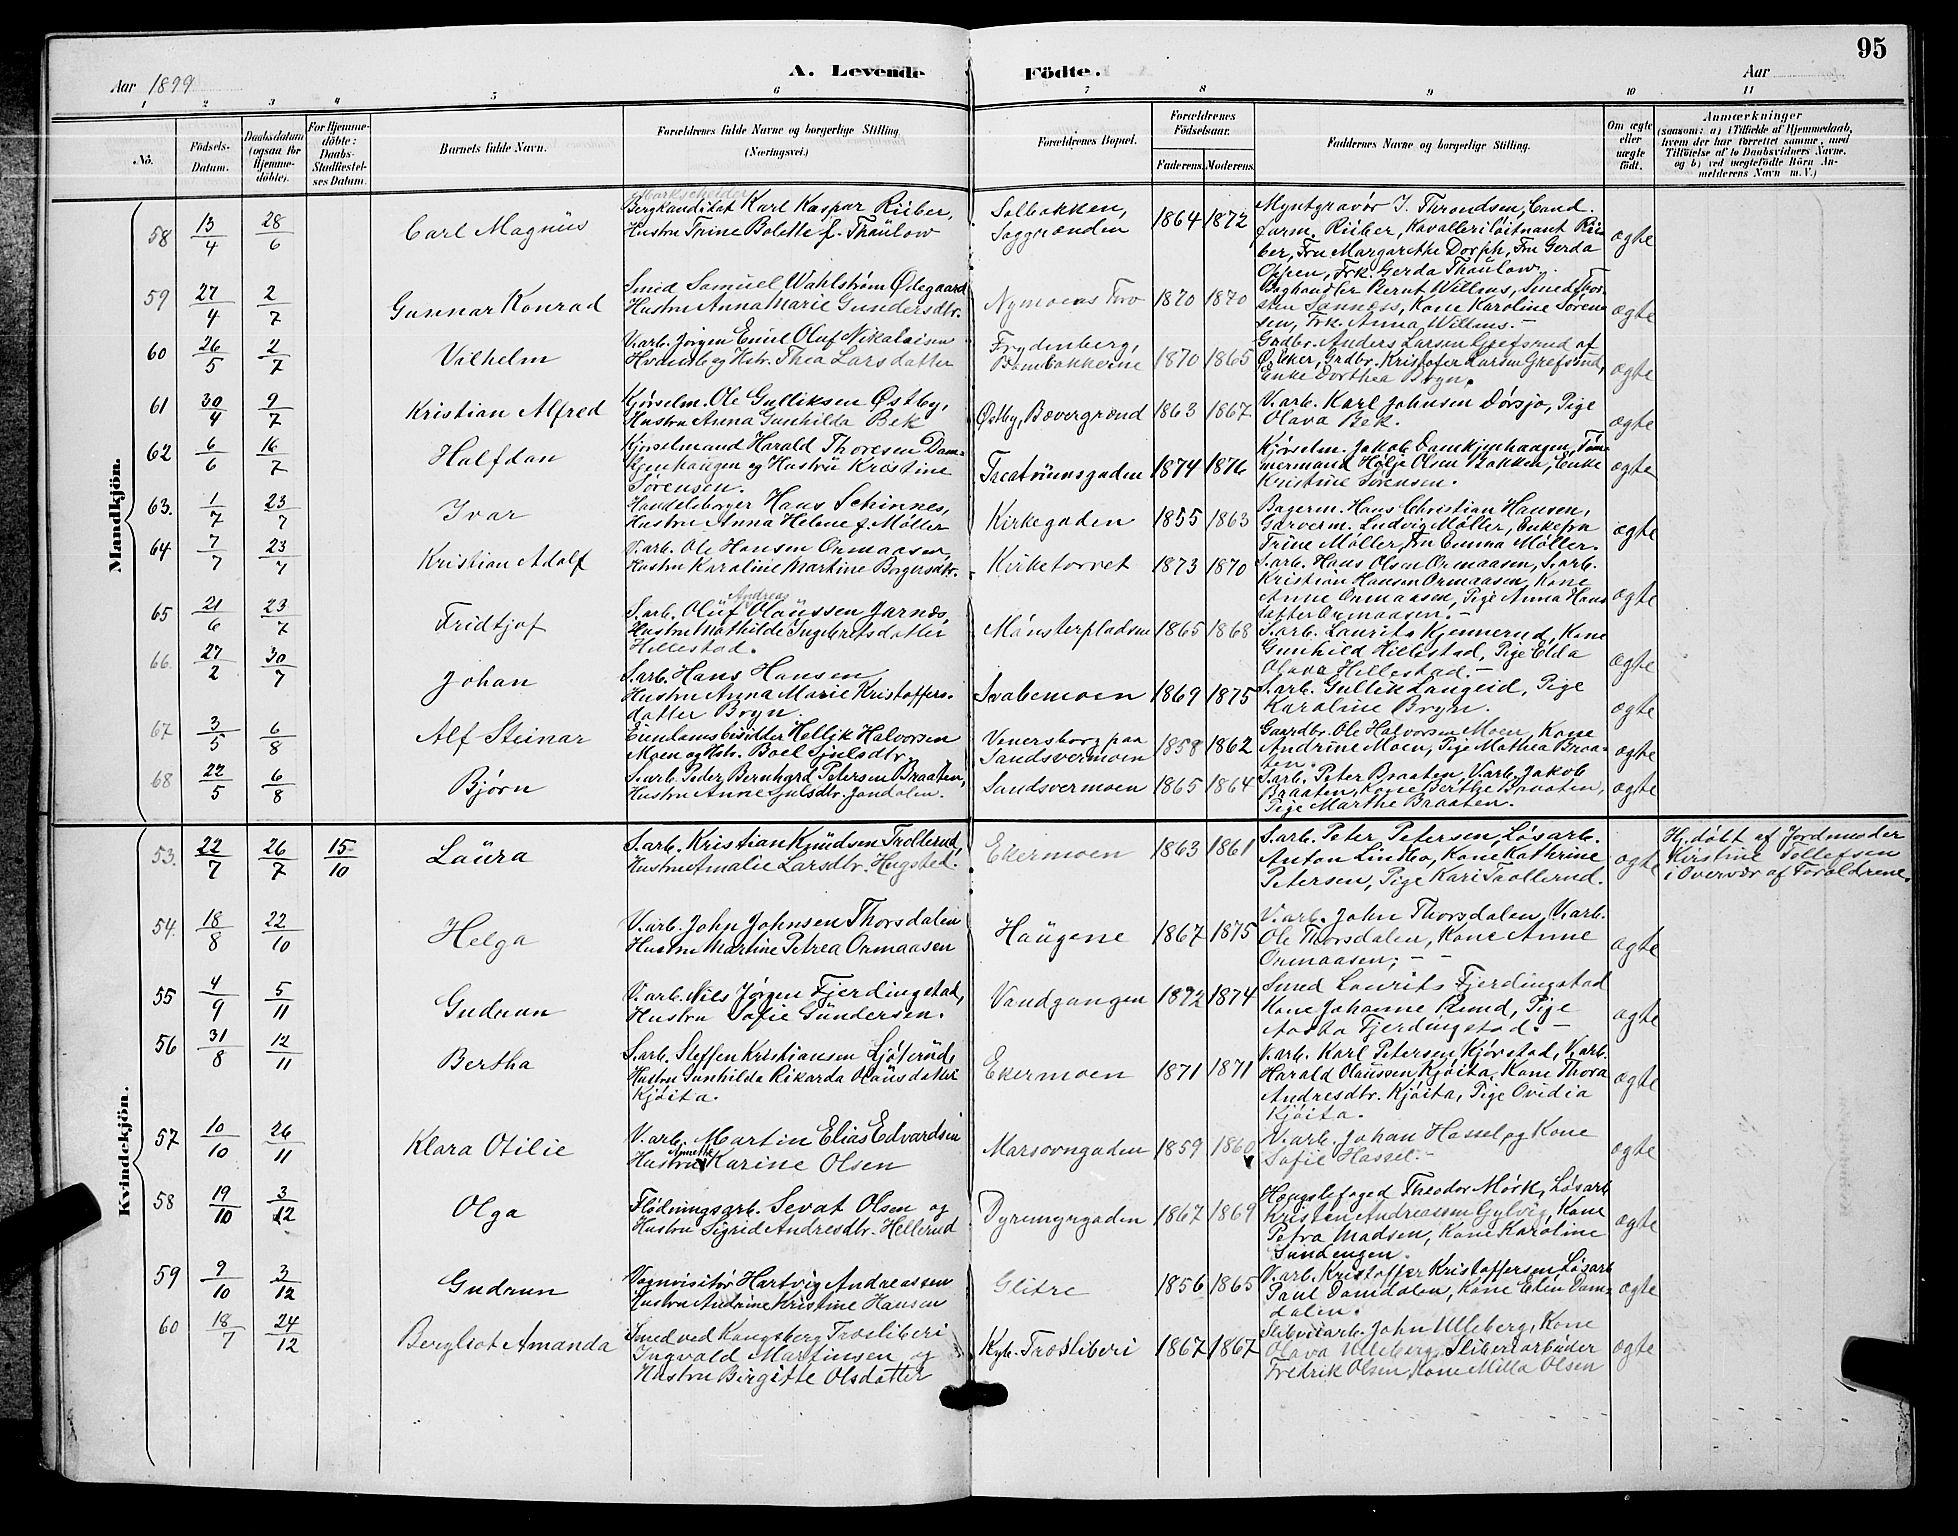 95
Aar 1899
A. Levende Födte.
Aar
1 2 3 4 5 6 7 8 9 10 11
No.
Födsels-
Datum.
Daabsdatum
(ogsaa for
Hjemme-
döbte).
For Hjemme-
döbte:
Daabs-
Stadfæstel-
ses Datum.
Barnets fulde Navn.
Forældrenes fulde Navne og borgerlige Stilling.
(Næringsvei.)
Forældrenes Bopæl.
Forældrenes
Födselsaar.
Faderens. Moderens.
Faddernes Navne og borgerlige Stilling.
Om ægte
eller
uægte
födt.
Anmærkninger
(saasom: a) i Tilfælde af Hjemmedaab,
hvem der har forrettet samme, med
Tilföielse af to Daabsvidners Navne.
og b) ved uægtefödte Börn An-
melderens Navn m. V.)
Mandkjön.
58 13/4 28/6 Carl Magnus
Markscheider
Bergkanditat Karl Kaspar Riiber,
Hustru Trine Bolette f. Thaulow
Solbakken,
Saggrænden
1864 1872
Myntgravør I. Throndsen, Cand.
farm. Riiber, Kavalleriløitnant Rii-
ber, Fru Margarethe Dorph, Fru Gerda
Oppen, Frk. Gerda Thaulow.
ægte
59 27/4 2/7 Gunnar Konrad
Smed Samuel Wahlstrøm Ødegaard
Hustru Anna Marie Gundersdtr.
Nymoens Torv
1870 1870
Boghandler Bernt Willms, Smed Thor-
sten Sannæss, Kone Karoline Sören-
sen, Frk. Anna Willms.-
ægte
60 26/5 2/7 Vilhelm
V.arb. Jörgen Emil Oluf Nikolaisen
og Hstr. Thea Larsdatter
Frydenberg,
Bombakkerne
1870 1865
Grdbr. Anders Larsen Grefsrud af
Øker, Grdbr. Kristofer Larsen Grefsrud,
Enke Dorthea Bryn.
ægte
61 30/4 9/7 Kristian Alfred
Kjørselm. Ole Gulliksen Østby,
Hustru Anna Gunhilda Bek
Østby, Bævergrænd
1863 1867
V.arb. Karl Johnsen Dørsjø, Pige
Olava Bek.
ægte
62 6/6 16/7 Halfdan
Kjørselmand Harald Thoresen Dam-
kjenhaugen og Hustru Kristine
Sørensen.
Træatrumsgaden
1874 1876
Kjørselm. Jakob Damkjenhaugen, Töm-
mermand Helje Olsen Bakken, Enke
Kristine Sørensen.
ægte
63. 1/7 23/7 Ivar
Handelsborger Hans Schinnes,
Hustru Anna Helene f. Møller
Kirkegaden
1855 1863
Bagerm. Hans Christian Hansen,
Garverm. Ludvig Møller, Enkefru
Trine Møller, Fru Emma Møller.
ægte
64 7/7 23/7 Kristian Adolf
V.arb. Ole Hansen Ormaasen,
Hustru Karoline Martine Borgersdtr.
Kirketorvet
1873 1870
S.arb. Hans Olsen Ormaasen, S.arb.
Kristian Hansen Ormaasen, Kone
Anne Ormaasen, Pige Anna Hans
datter Ormaasen.-
ægte
65 21/6 23/7 Fridtjof
Andreas
S.arb. Oluf Olaussen Jarnæs,
Hustru Mathilde Ingebretsdatter
Hillestad.
Mønsterpladsen
1865 1868
S.arb. Laurits Kjennerud, Kone
Gunhild Hillestad, Pige Elda
Olava Hillestad.-
ægte
66. 27/2 30/7 Johan
S.arb. Hans Hansen
Hustru Anna Marie Kristoffers-
datter Bryn.
Svabemoen
1869 1875
S.arb. Gullik Langeid, Pige
Karoline Bryn.
ægte
67 3/5 6/8 Alf Steinar
Eiendomsbesidder Hellik Halvorsen
Moen og Hstr. Boel Sjulsdtr.
Venersborg paa
Sandsvermoen
1858 1862
Gaardbr. Ole Halvorsen Moen, Kone
Andrine Moen, Pige Mathea Braa-
ten.
ægte
68 22/5 6/8 Bjørn
S.arb. Peder Bernhard Petersen Braaten,
Hustru Anne Sjulsdtr. Jondalen.
Sandsvermoen
1865 1864
S.arb. Peter Braaten, V.arb. Jakob
Braaten, Kone Berthe Braaten,
Pige Marthe Braaten.
ægte
Kvindekjön.
53. 22/7 26/7 15/10 Laura
S.arb. Kristian Knudsen Trollerud,
Hustru Amalie Larsdtr. Hegsted.
Ekermoen
1863 1861
S.arb. Peter Petersen, Løsarb.
Anton Lindbo, Kone Kathrine
Petersen, Pige Kari Trollerud.
ægte
Hj. døbt af Jordmoder
Kirstine Tollefsen
i Overvær af Forældrene.
54. 18/8 22/10 Helga
V.arb. John Johnsen Thorsdalen
Hustru Martine Petrea Ormaasen
Haugene
1867 1875
V.arb. John Thorsdalen, V.arb.
Ole Thorsdalen, Kone Anne
Ormaasen; - -
ægte
55 4/9 5/11 Gudrun
V.arb. Nils Jørgen Fjerdingstad,
Hustru Sofie Gundersen.
Vandgangen
1872 1874
Smed Laurits Fjerdingstad
Kone Johanne Rund, Pige
Aasta Fjerdingstad.-
ægte
56 31/8 12/11 Bertha
S.arb. Steffen Kristiansen Ljøterud,
Hustru Gunhilda Rikarda Olausdatter
Kjøita.
Ekermoen
1871 1871
V.arb. Karl Petersen Kjørstad, V.arb.
Harald Olaussen Kjøita, Kone Thora
Andresdtr. Kjøita, Pige Ovidia
Kjøita.
ægte
57 10/10 26/11 Klara Otilie
V.arb. Martin Elias Edvardsen
Annette
Hustru Karine Olsen
Marsovngaden
1859 1860
V.arb. Johan Hassel, og Kone
Sofie Hassel.-
ægte
58 19/10 3/12 Olga
Flødningsarb. Sevat Olsen og
Hustru Sigrid Andresdtr. Hellerud
Dyremyrgaden
1867 1869
Haugsfoged Theodor Mørk, Løsarb
Kristen Andreassen Gylvig, Kone
Petra Madsen, Kone Karoline
Sundengen.
ægte
59 9/10 3/12 Gudrun
Vognvisitør Hartvig Andreassen
Hustru Andrine Kristine Hansen
Glitre
1856 1865
V.arb. Kristoffer Kristoffersen, Løsarb
Paul Damdalen, Kone Elen Dam-
dalen.
ægte
60 18/7 24/12 Bergliot Amanda
Smed ved Kongsberg Træsliberi
Ingvald Martinsen og
Hustru Birgitte Olsdatter
Kgb. Træsliberi
1867 1867
Sliberiarb. John Ulleberg, Kone
Olava Ulleberg, Sliberiarbeider
Fredrik Olsen, Kone Milla Olsen
ægte